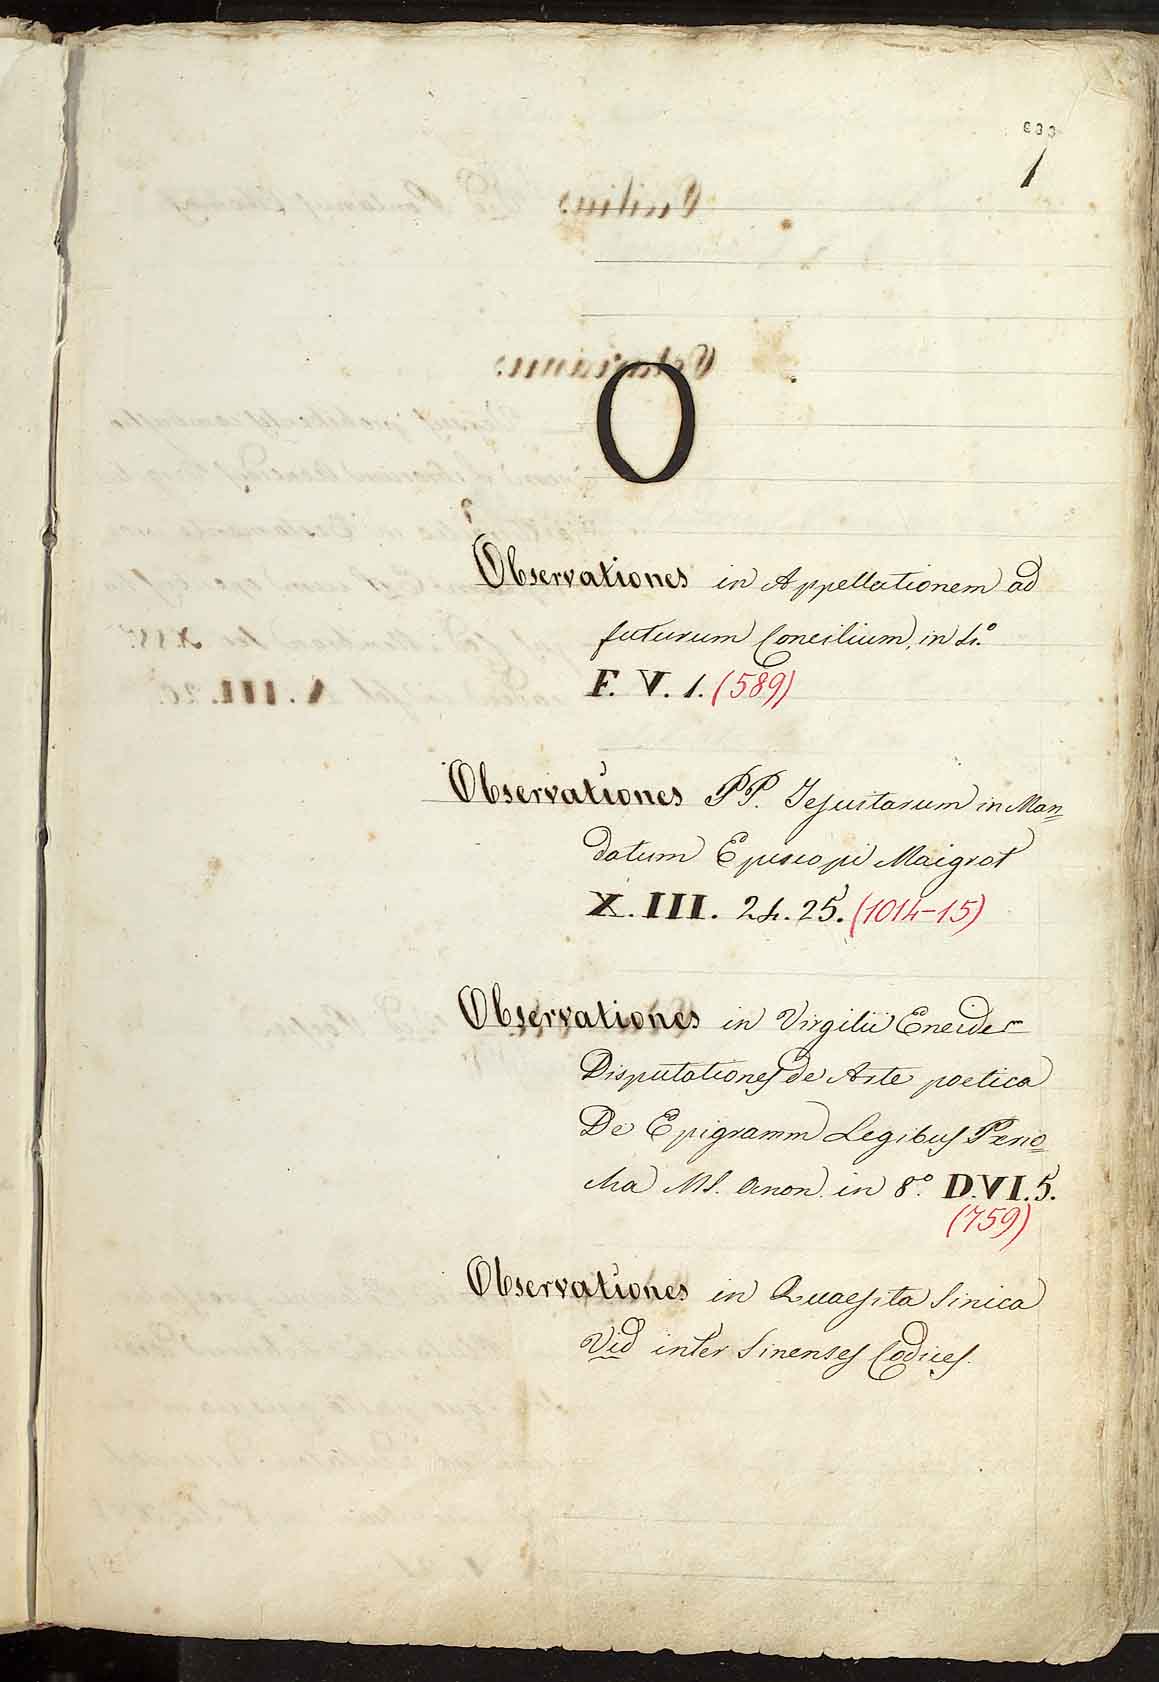 1
O
Observationes in Appellationem ad
futurum Concilium, in 4.º
F. V. 1. (589)
Observationes PP. Jesuitarum in Man=
datum Episcopi Maigrot
X. III. 24. 25. (1014-15)
Observationes in Virgilii Eneider
Disputationes de Arte poetica
De Epigramm Legibus
MS. Anon. in 8.º D.VI.5.
(759)
Observationes in Quaesita Sinica
Vid inter Sinenses Codices.